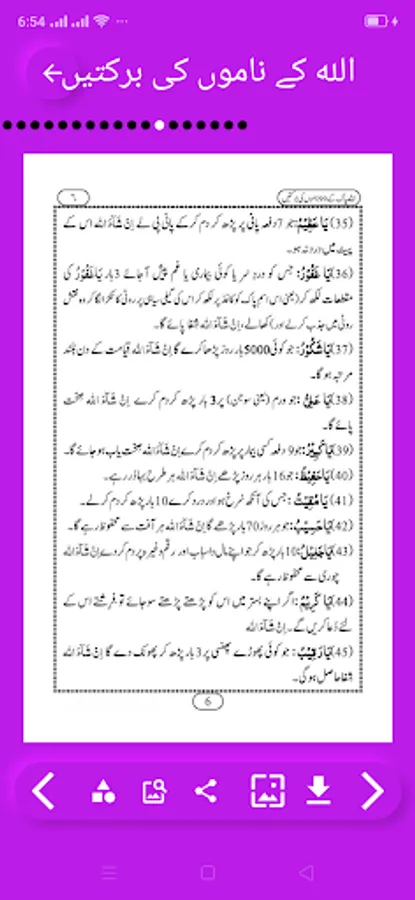 6:54
الله کے ناموں کی برکتیں
٦
(35) یَا عَظِیْمُ: جو 7 دفعہ پانی پر پڑھ کر دم کرکے پانی پی لے اِنْ شَآءَ اللہ اس کے
پیٹ میں درد نہ ہو۔
(36) یَا غَفُوْرُ: جس کو دردِ سر یا کوئی بیماری یا غم پیش آجائے 3 بار یَا غَفُوْرُ کی
مقطعات لکھ کر (یعنی اس اسم پاک کو کاغذ پر لکھ کر اس کی گیلی سیاہی پر روٹی کا ٹکڑا لگا کر وہ نقش
روٹی میں جذب کرلے اور) کھالے، اِنْ شَآءَ اللہ شفا پائے گا۔
(37) یَا شَکُوْرُ: جو کوئی 5000 بار روز پڑھا کرے گا اِنْ شَآءَ اللہ قیامت کے دن بلند
مرتبہ ہو گا۔
(38) یَا عَلِیُّ: جو ورم (یعنی سوجن) پر 3 بار پڑھ کر دم کرے اِنْ شَآءَ اللہ صحت
پائے گا۔
(39) یَا کَبِیْرُ: جو 9 دفعہ کسی بیمار پر پڑھ کر دم کرے اِنْ شَآءَ اللہ صحت یاب ہو جائے گا۔
(40) یَا حَفِیْظُ: جو 16 بار ہر روز پڑھے اِنْ شَآءَ اللہ ہر طرح نڈر رہے۔
(41) یَا مُقِیْتُ: جس کی آنکھ سُرخ ہو اور درد کرے 10 بار پڑھ کر دم کرلے۔
(42) یَا حَسِیْبُ: جو ہر روز 70 بار پڑھے گا اِنْ شَآءَ اللہ ہر آفت سے محفوظ رہے گا۔
(43) یَا جَلِیْلُ: 10 بار پڑھ کر جو اپنے مال و اسباب اور رقم وغیرہ پر دم کردے اِنْ شَآءَ اللہ
چوری سے محفوظ رہے گا۔
(44) یَا کَرِیْمُ: اگر اپنے بستر میں اس کو پڑھتے پڑھتے سوجائے تو فرشتے اس کے
لئے دُعا کریں گے۔ اِنْ شَآءَ اللہ
(45) یَا رَقِیْبُ: جو کوئی پھوڑے پھنسی پر 3 بار پڑھ کر پھونک دے گا اِنْ شَآءَ اللہ
شفا حاصل ہو گی۔
6